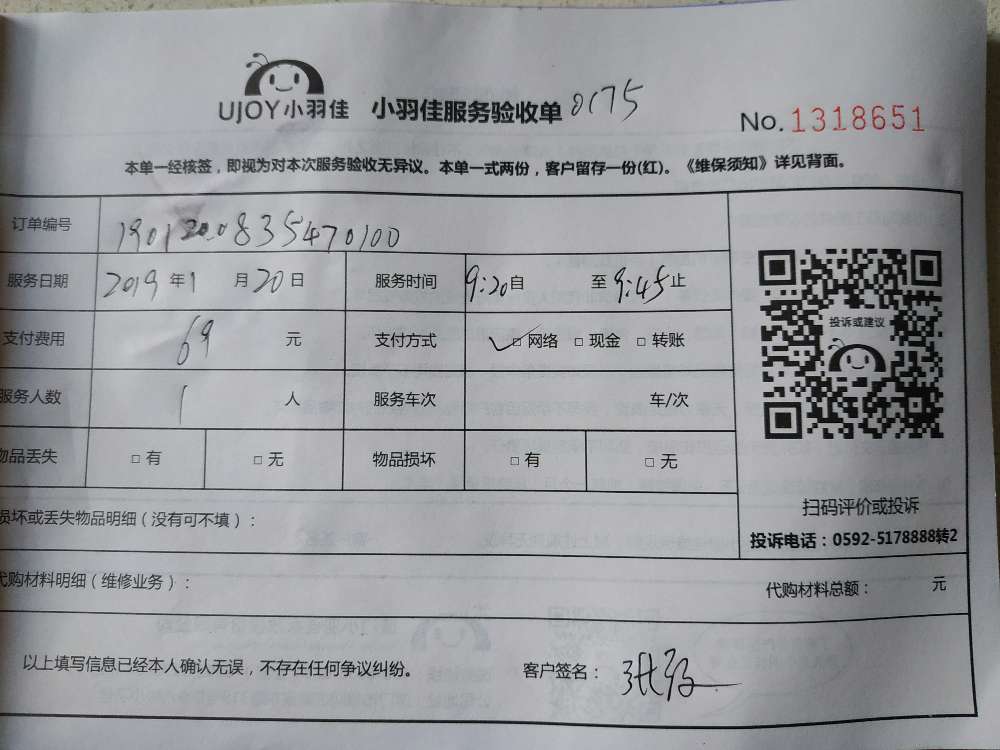 UJOY小羽佳 小羽佳服务验收单 0175
No. 1318651
本单一经核签，即视为对本次服务验收无异议。本单一式两份，客户留存一份(红)。《维保须知》详见背面。
订单编号 190120083547 0100
服务日期 2019 年 1 月 20 日 服务时间 9:20 自 至 9:45 止
投诉或建议
支付费用 69 元 支付方式 ✓□ 网络 □ 现金 □ 转账
服务人数 1 人 服务车次 车/次
物品丢失 □ 有 □ 无 物品损坏 □ 有 □ 无
扫码评价或投诉
投诉电话：0592-5178888转2
损坏或丢失物品明细（没有可不填）：
代购材料明细（维修业务）： 代购材料总额： 元
以上填写信息已经本人确认无误，不存在任何争议纠纷。 客户签名：